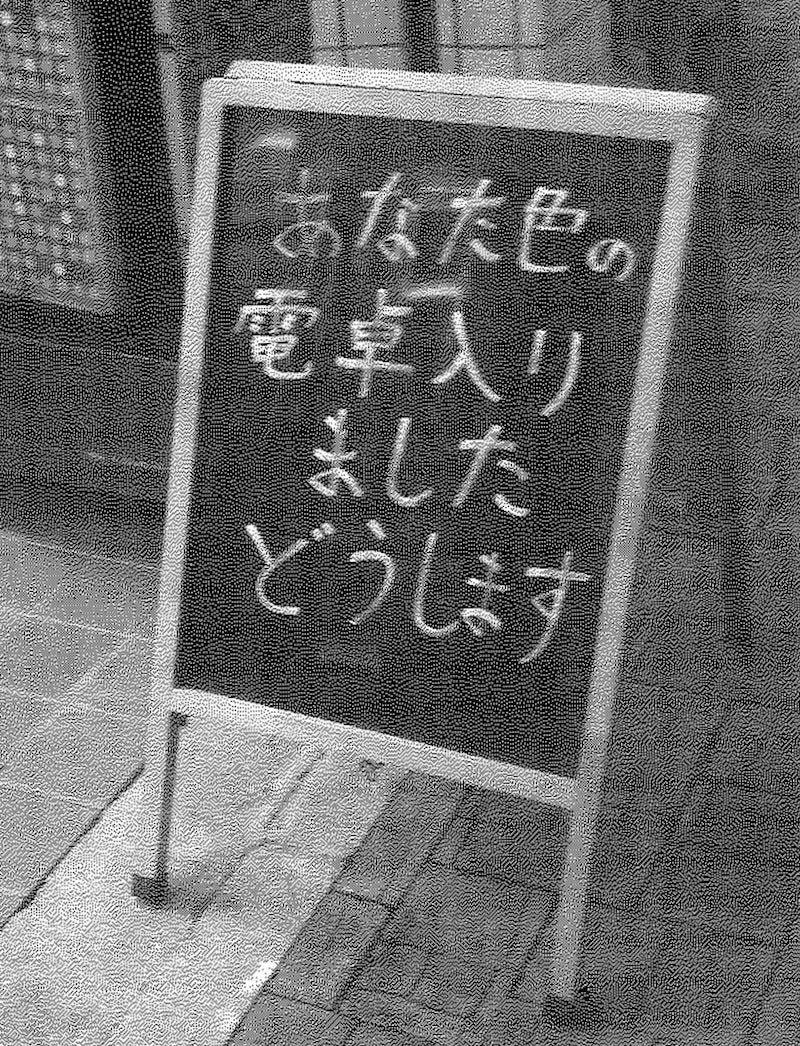 あなた色の
電卓入り
ました
どうします